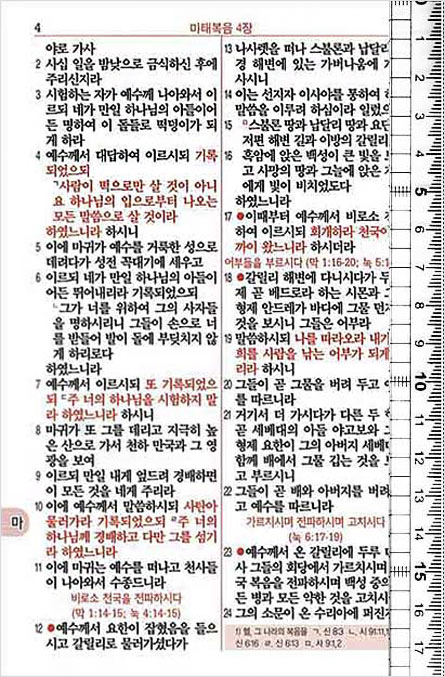 4
마태복음 4장
야로 가사
2 사십 일을 밤낮으로 금식하신 후에
주리신지라
3 시험하는 자가 예수께 나아와서 이
르되 네가 만일 하나님의 아들이어
든 명하여 이 돌들로 떡덩이가 되
게 하라
4 예수께서 대답하여 이르시되 기록
되었으되
ㄱ사람이 떡으로만 살 것이 아니
요 하나님의 입으로부터 나오는
모든 말씀으로 살 것이라
하였느니라 하시니
5 이에 마귀가 예수를 거룩한 성으로
데려다가 성전 꼭대기에 세우고
6 이르되 네가 만일 하나님의 아들이
어든 뛰어내리라 기록되었으되
ㄴ그가 너를 위하여 그의 사자들
을 명하시리니 그들이 손으로 너
를 받들어 발이 돌에 부딪치지 않
게 하리로다
하였느니라
7 예수께서 이르시되 또 기록되었으
되 ㄷ주 너의 하나님을 시험하지 말
라 하였느니라 하시니
8 마귀가 또 그를 데리고 지극히 높
은 산으로 가서 천하 만국과 그 영
광을 보여
9 이르되 만일 내게 엎드려 경배하면
이 모든 것을 네게 주리라
10 이에 예수께서 말씀하시되 사탄아
물러가라 기록되었으되 ㄹ주 너의
하나님께 경배하고 다만 그를 섬기
라 하였느니라
11 이에 마귀는 예수를 떠나고 천사들
이 나아와서 수종드니라
비로소 천국을 전파하시다
(막 1:14-15; 눅 4:14-15)
12 ●예수께서 요한이 잡혔음을 들으
시고 갈릴리로 물러가셨다가
마
13 나사렛을 떠나 스불론과 납달리
경 해변에 있는 가버나움에 가
사시니
14 이는 선지자 이사야를 통하여 하
말씀을 이루려 하심이라 일렀으
15 ㅁ스불론 땅과 납달리 땅과 요단
저편 해변 길과 이방의 갈릴리
16 흑암에 앉은 백성이 큰 빛을 보
고 사망의 땅과 그늘에 앉은 자
에게 빛이 비치었도다
하였느니라
17 ●이때부터 예수께서 비로소 전
하여 이르시되 회개하라 천국이
까이 왔느니라 하시더라
어부들을 부르시다 (막 1:16-20; 눅 5:1
18 ●갈릴리 해변에 다니시다가 두
제 곧 베드로라 하는 시몬과 그
형제 안드레가 바다에 그물 던지
것을 보시니 그들은 어부라
19 말씀하시되 나를 따라오라 내가
희를 사람을 낚는 어부가 되게
리라 하시니
20 그들이 곧 그물을 버려 두고 예
를 따르니라
21 거기서 더 가시다가 다른 두 형
곧 세베대의 아들 야고보와 그
형제 요한이 그의 아버지 세베대
함께 배에서 그물 깁는 것을 보
고 부르시니
22 그들이 곧 배와 아버지를 버려
고 예수를 따르니라
가르치시며 전파하시며 고치시다
(눅 6:17-19)
23 ●예수께서 온 갈릴리에 두루 다
사 그들의 회당에서 가르치시며
국 복음을 전파하시며 백성 중의
든 병과 모든 약한 것을 고치시
24 그의 소문이 온 수리아에 퍼진지
1) 헬, 그 나라의 복음을 ㄱ. 신 8:3 ㄴ. 시 91:11,1
신 6:16 ㄹ. 신 6:13 ㅁ. 사 9:1,2
1
2
3
4
5
6
7
8
9
10
11
12
13
14
15
16
17